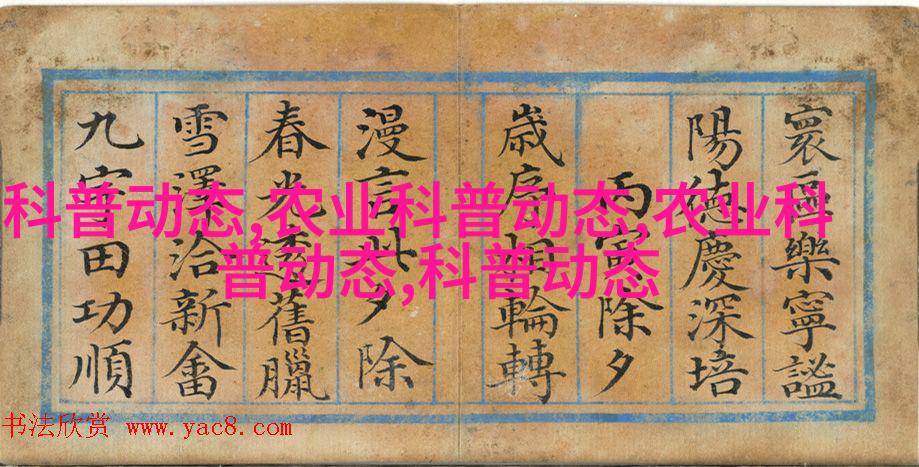 寰樂寧謐
陽德慶深培
丙寅除夕
歲序相輪轉
漫言此夕除
春光透舊臘
雪澤洽新畬
九田功順
科普动态,农业科普动态,农业科
普动态,科普动态
书法欣赏 www.yac8.com